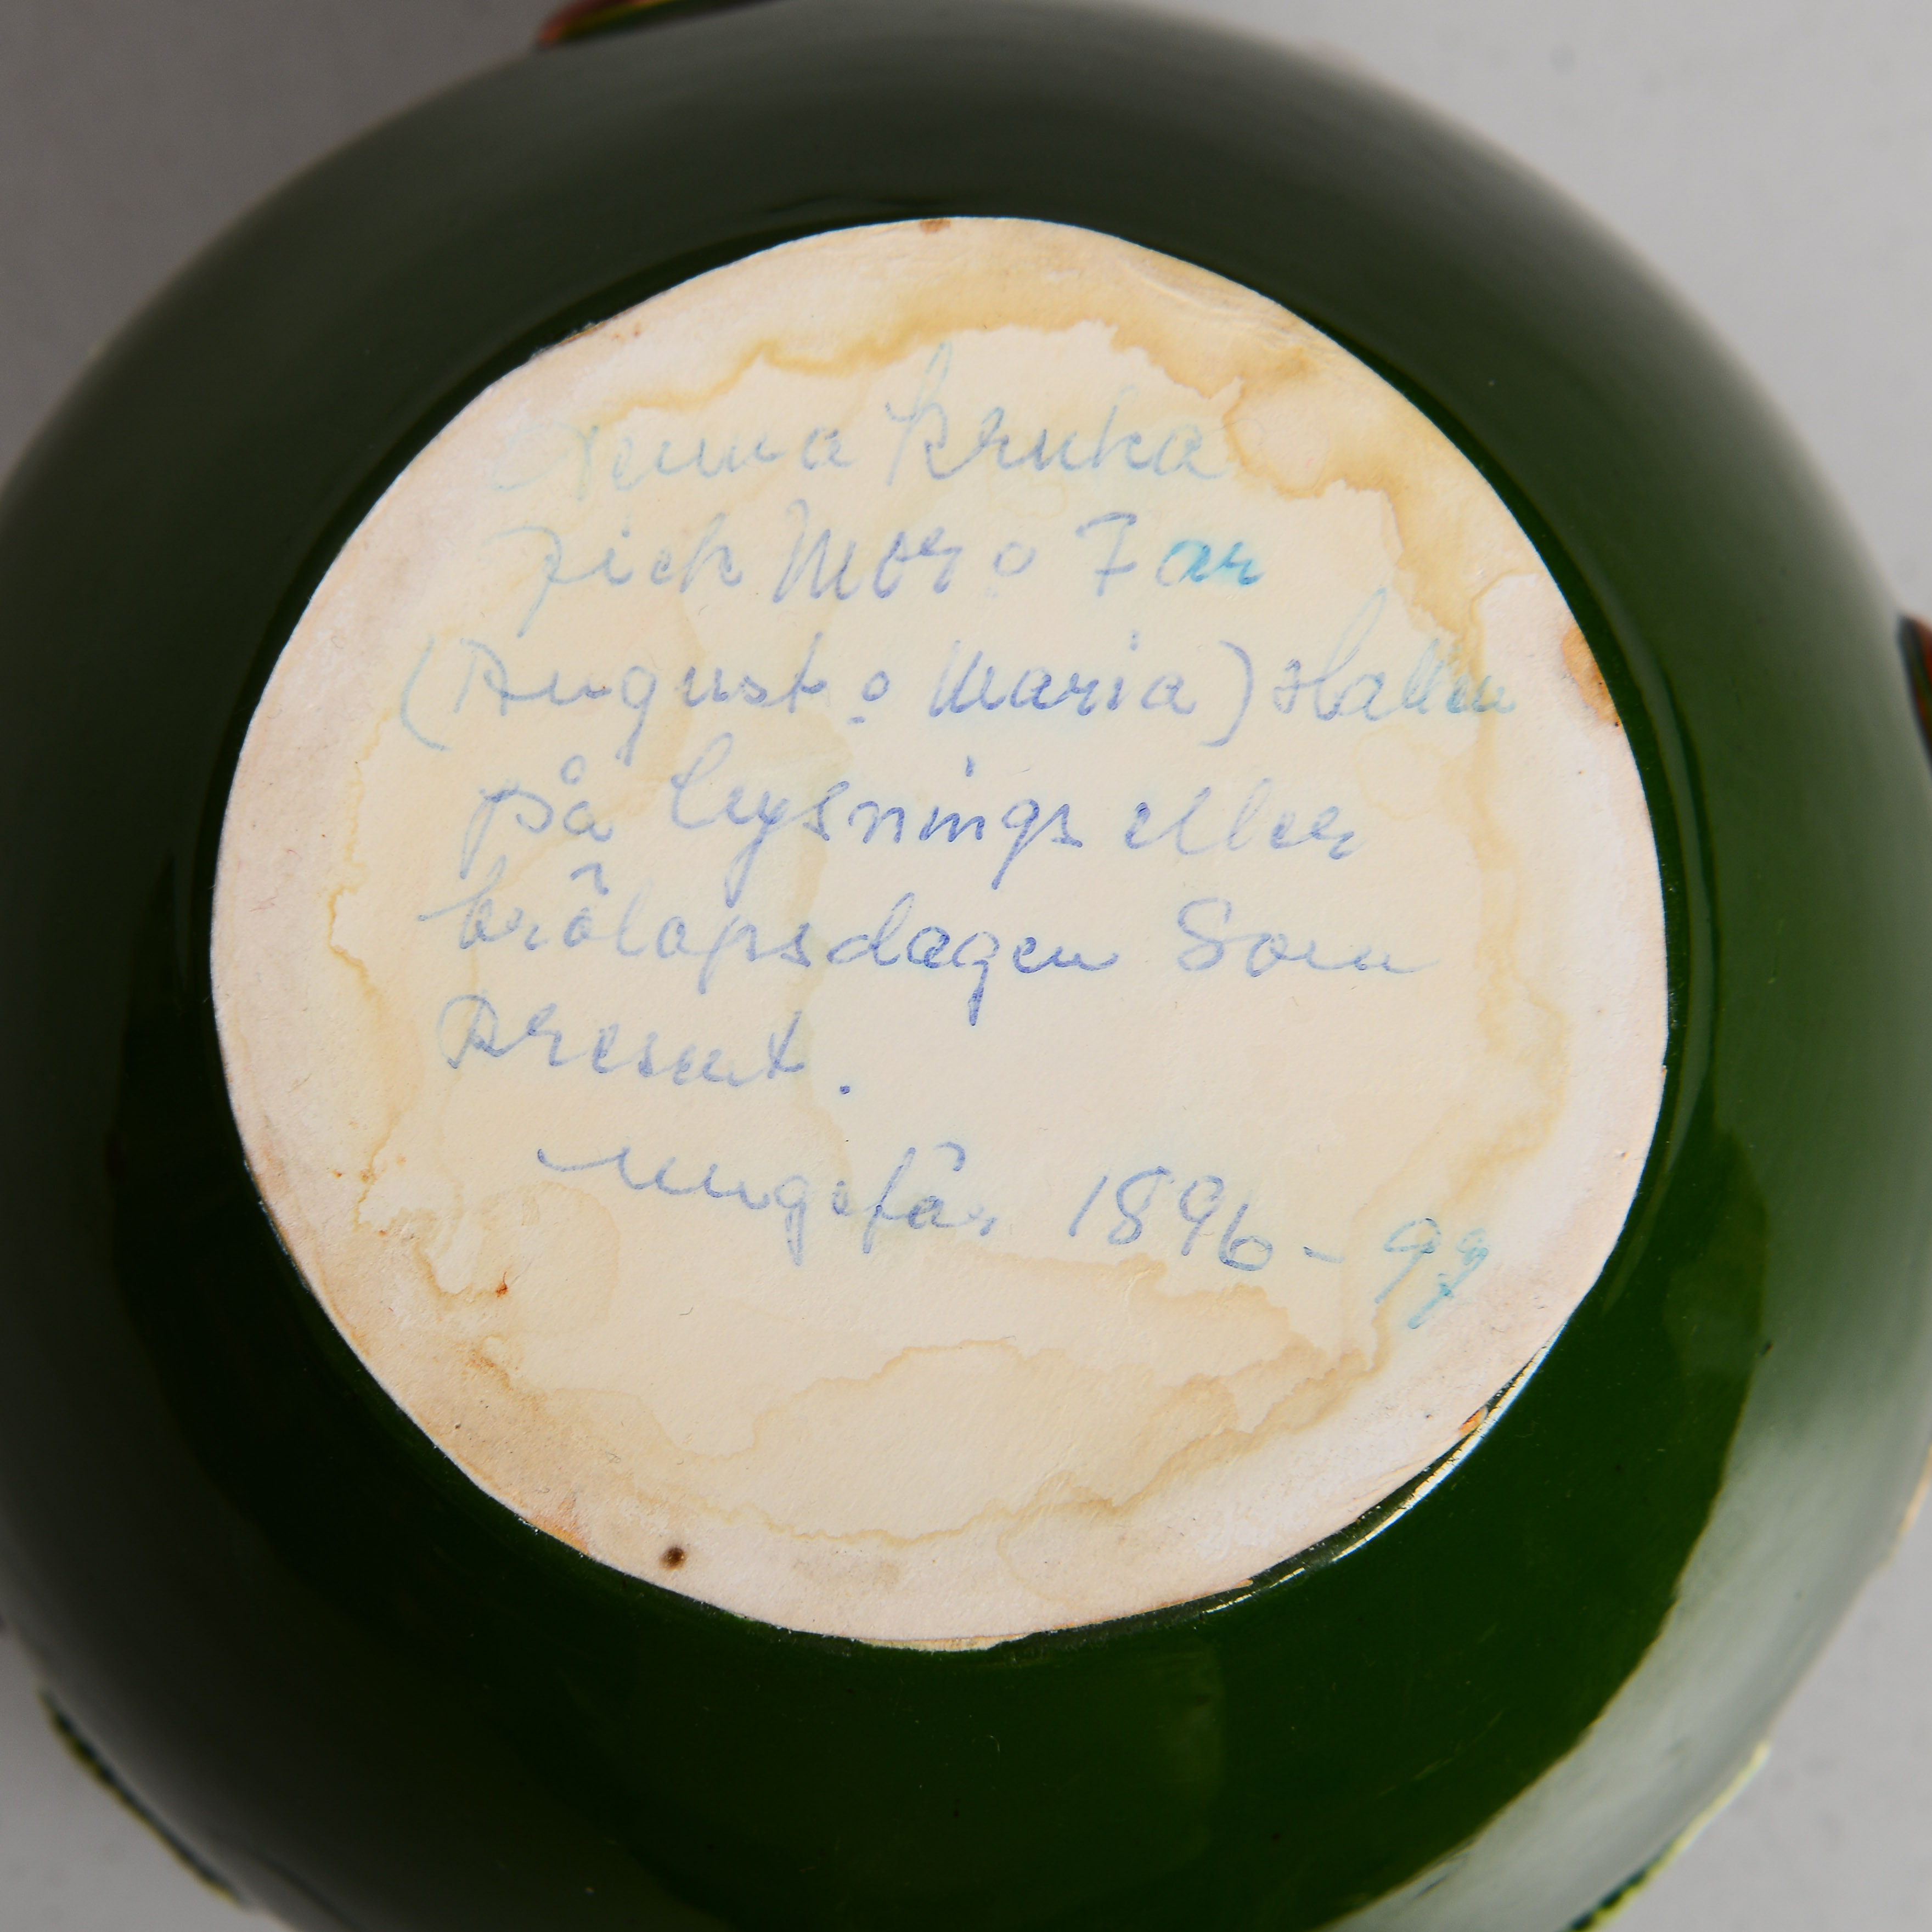 Denna kruka
fick Mor o Far
(August o Maria) Hallen
på lysnings eller
brölopsdagen Som
present.
ungefär 1896-99